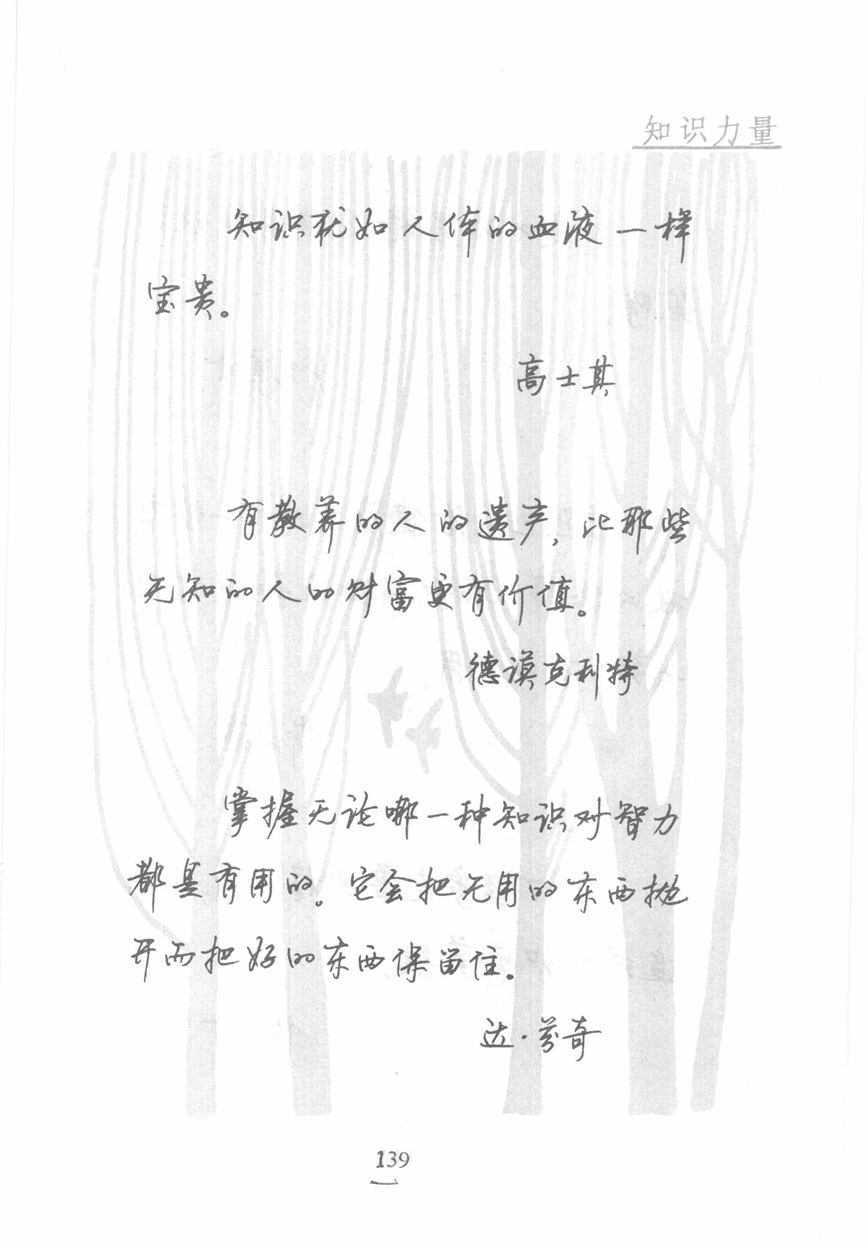 知识力量
知识犹如人体的血液一样
宝贵。
高士其
有教养的人的遗产,比那些
无知的人的财富更有价值。
德谟克利特
掌握无论哪一种知识对智力
都是有用的。它会把无用的东西抛
开而把好的东西保留住。
达·芬奇
139